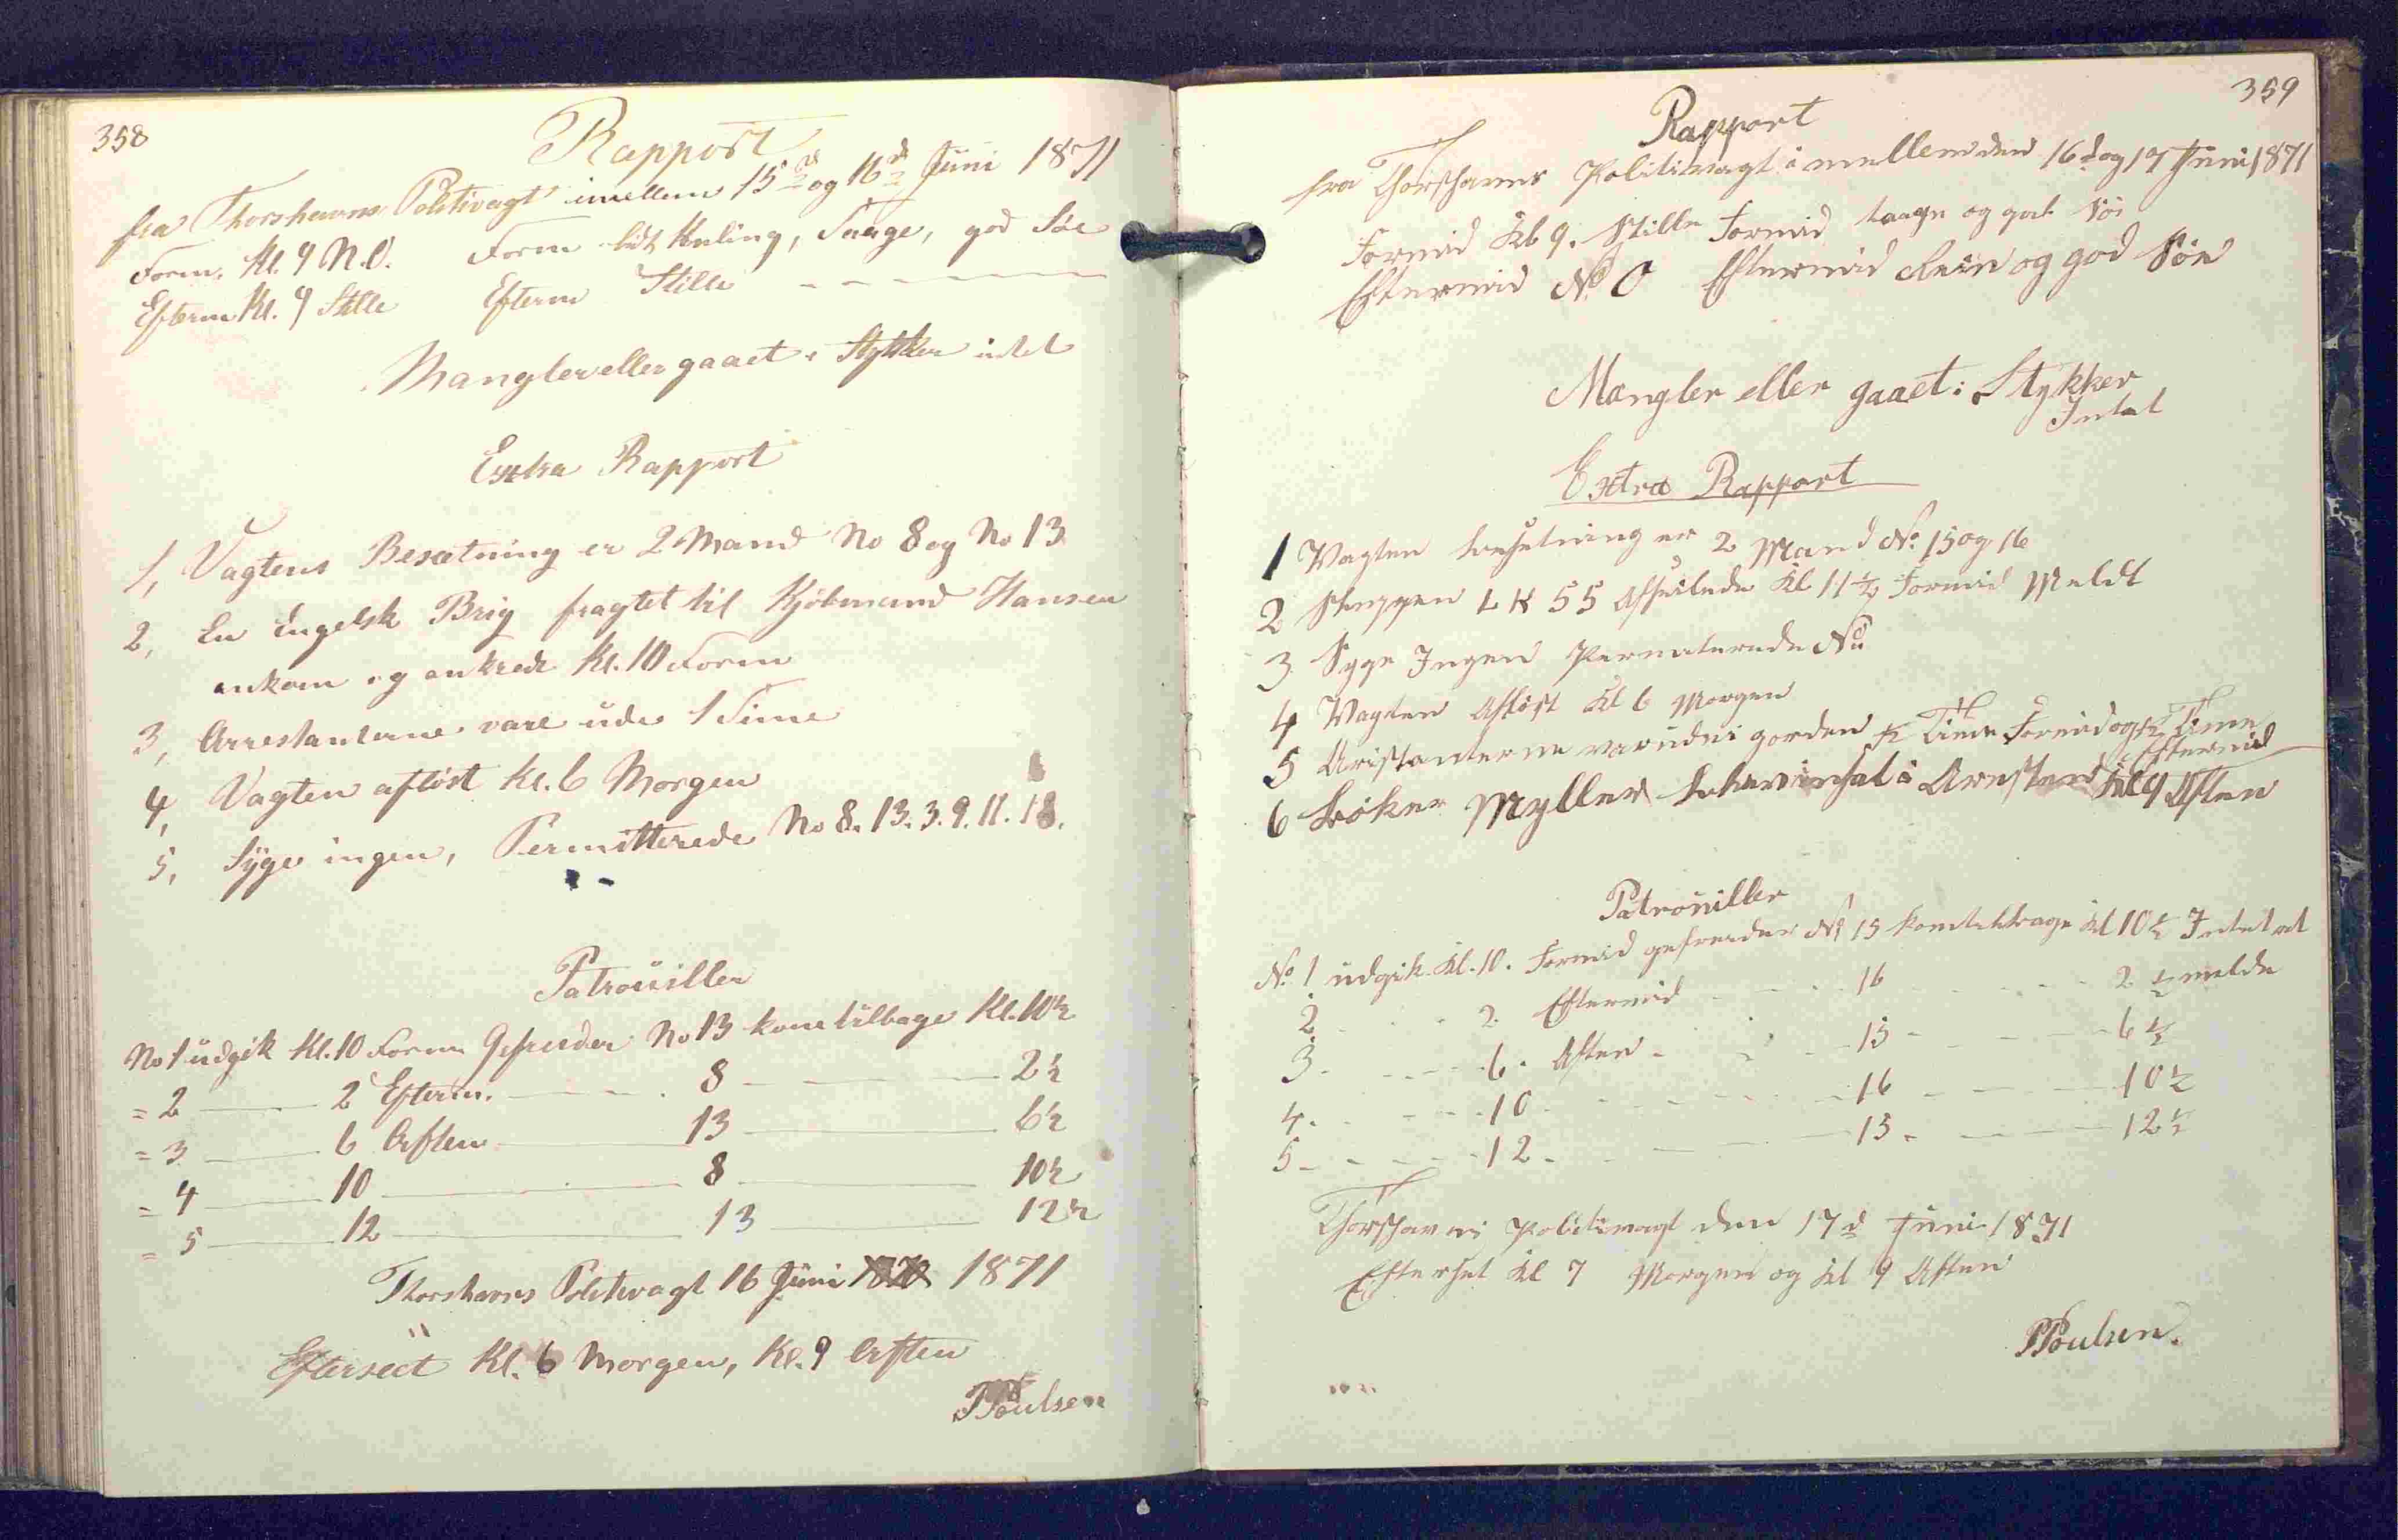 358
Rapport
fra Thorshavns Politivagt imellem 15d og 16d Juni 1871
Form. Kl. 9 N.O. Form lidt Kuling, Taage, god Söe
Efterm Kl. 9 Stille Efterm Stille - - - - - -
Mangler eller gaaet i Stykker intet
Extra Rapport
1, Vagtens Besætning er 2 Mand No 8 og No 13
2, En Engelsk Brig fragtet til Kjöbmand Hansen
ankom og ankrede Kl. 10 Form
3, Arrestanterne vare ude 1 Time
4, Vagten aflöst Kl. 6 Morgen
5, Syge ingen, Permitterede No 8. 13. 3. 9. 11. 18.
Patrouiller
No 1 udgik Kl. 10 Form Gefreider No 13 kom tilbage Kl. 10½
= 2 — 2 Efterm. — 8 — 2½
= 3 — 6 Aften — 13 — 6½
= 4 — 10 — 8 — 10½
= 5 — 12 — 13 — 12½
Thorshavns Politivagt 16 Juni 1871
Efterseet Kl. 6 Morgen, Kl. 9 Aften
PPoulsen
359
Rapport
fra Thorshavns Politivagt i mellem den 16d og 17 Juni 1871
Formid Kl 9. Stille Formid taage og god Söe
Eftermid N. O Eftermid og god Söe
Mangler eller gaaet i Stykker
Intet
Extra Rapport
1 Vagten besetning er 2 Mand No. 15 og 16
2 Sluppen LK 55 Afseilede Kl 11½ Formid Meldt
3. Syge Ingen Permeterede No
4 Vagten Aflöst Kl 6 Morgen
5 Aristanterne var ude i gorden ½ Time Formid og ½ Time
Eftermid
6 Myller i Aresten Kl 9 Aften
Patrouiller
No. 1 udgik Kl. 10. Formid gefreider No 15 kom tilbage Kl 10½ Intet at
2 - - 2 Eftermid - - 16 - - 2½ melde
3 - - 6. Aften - - 15 - - 6½
4. - - 10 - - 16 - - 10½
5 - - 12 - - 15 - - 12½
Thorshavns Politivagt den 17d Juni 1871
Efterset Kl 7 Morgen og Kl 9 Aften
PPoulsen.